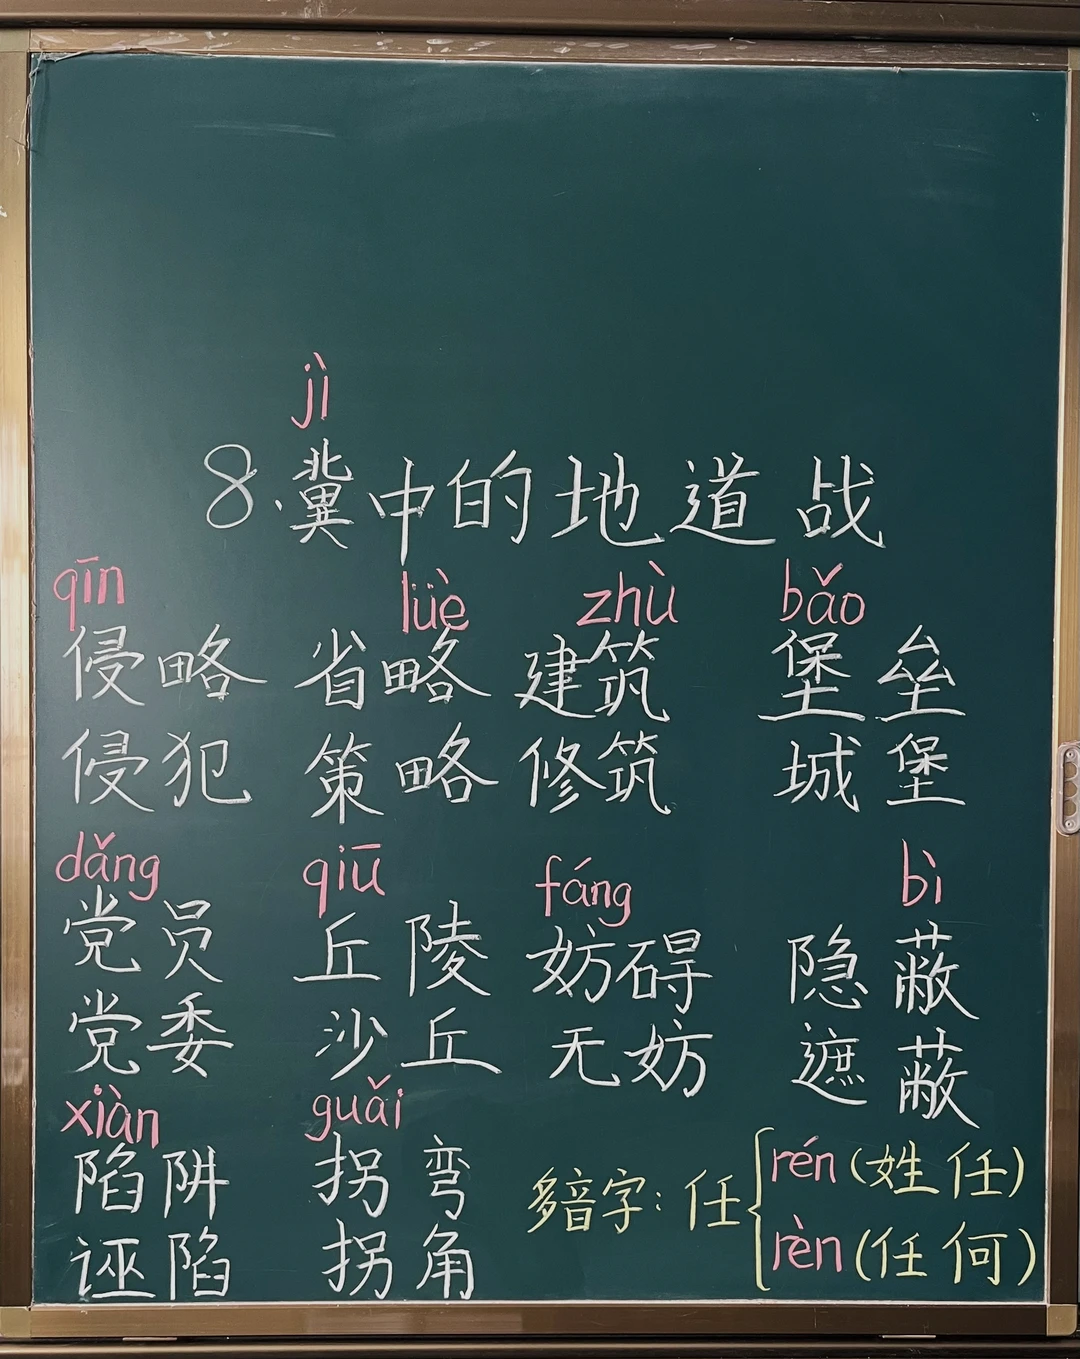 jì
8.冀中的地道战
qīn lüè zhù bǎo
侵略 省略 建筑 堡垒
侵犯 策略 修筑 城堡
dǎng qiū fáng bì
党员 丘陵 妨碍 隐蔽
党委 沙丘 无妨 遮蔽
xiàn guǎi
陷阱 拐弯
诬陷 拐角
多音字：任 rén（姓任）
rèn（任何）